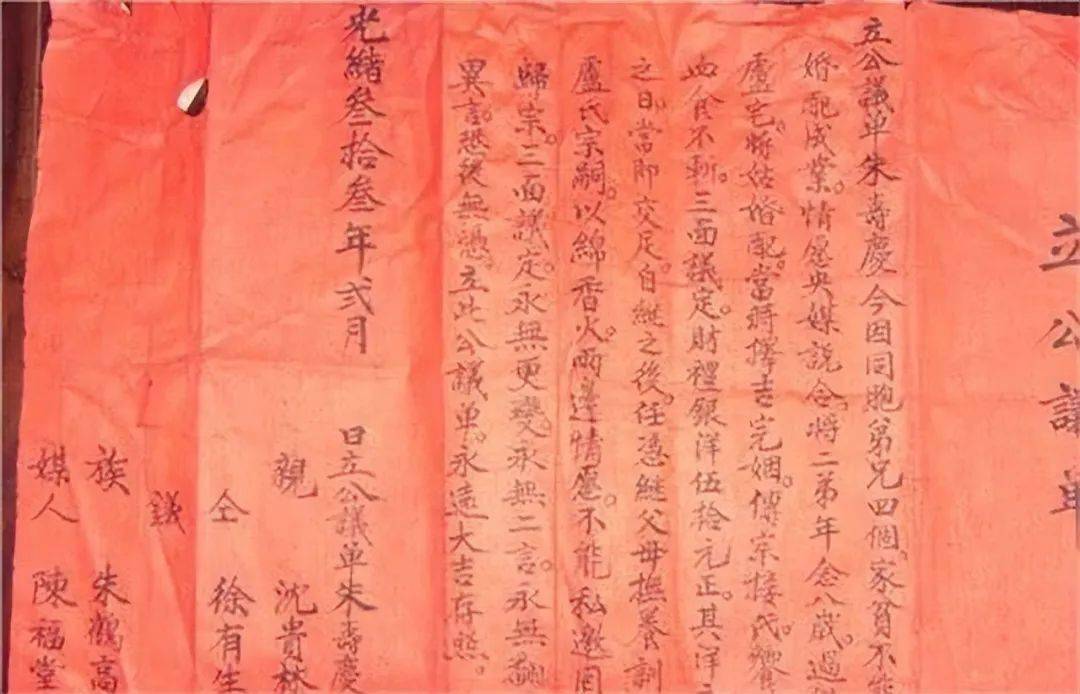 立公議单
立公議单朱壽慶今因同胞弟兄四個。家貧不能
婚配成業。情愿央媒説合。將二弟年念八歲。過
盧宅。將姑婚配。當將擇吉完姻。傳宗接氏。饗
血食不斬。三面議定。財禮銀洋伍拾元正。其洋
之日。當即交足。自継之後。任憑継父母撫養訓
盧氏宗嗣。以綿香火。兩邊情愿。不能私邀回
歸宗。三面議定。永無更變。永無二言。永無翻
異言。恐後無憑。立此公議单。永遠大吉存照。
光緒叁拾叁年弍月
日立公議单朱壽慶
親 沈貴林
仝 徐有生
議
族 朱鶴高
媒人 陳福堂